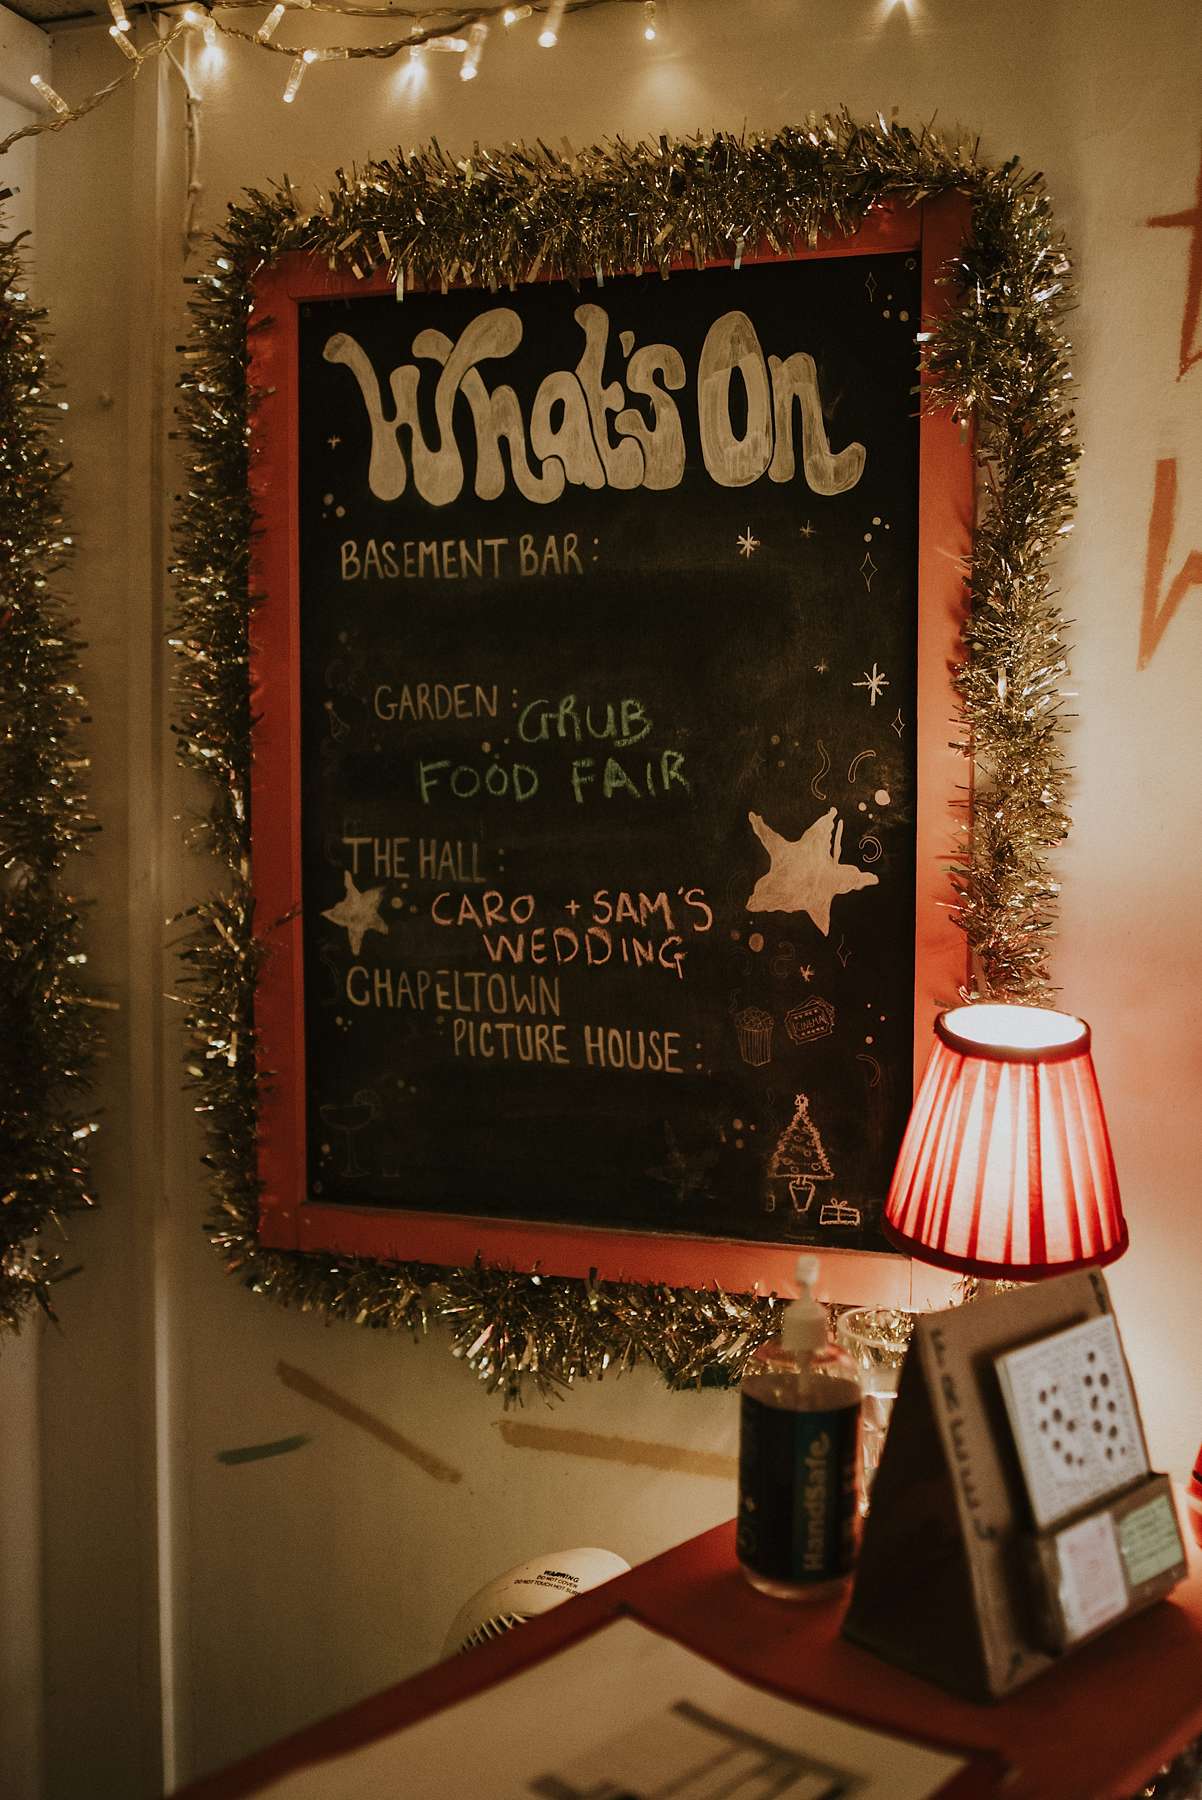 What's On
BASEMENT BAR:
GARDEN: GRUB
FOOD FAIR
THE HALL:
CARO + SAM'S
WEDDING
CHAPELTOWN
PICTURE HOUSE:
CINEMA
HandSafe
WARNING
DO NOT COVER